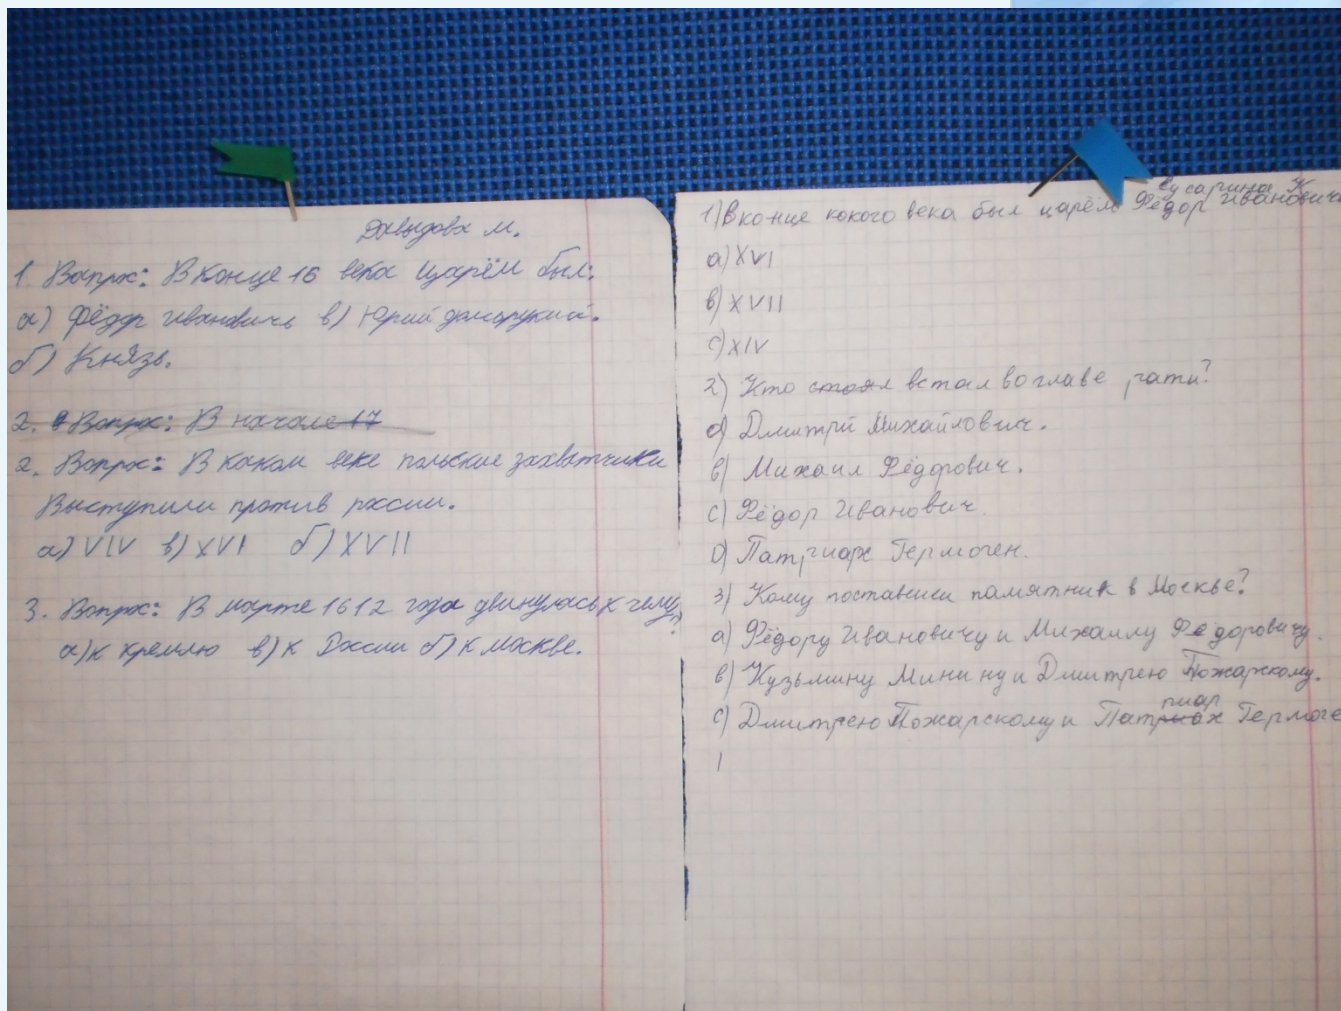 Давыдова М.
1. Вопрос: В конце 16 века Царём был:
а) Фёдор Ивановичь в) Юрий долгорукий.
б) Князь.
2. Вопрос: В начале 17
2. Вопрос: В каком веке польские захватчики
Выступили против россии.
а) VIV в) XVI б) XVII
3. Вопрос: В марте 1612 года двинулась к чему?
а) к кремлю в) к России б) к москве.
1) В конце кокого века был царём Фёдор Иванович
а) XVI
в) XVII
с) XIV
2) Кто стоял встал во главе рати?
а) Дмитрий Михайлович.
в) Михаил Фёдорович.
с) Фёдор Иванович.
D) Патриарх Гермоген.
3) Кому поставили памятник в Москве?
а) Фёдору Ивановичу и Михаилу Федоровичу.
в) Кузьмину Минину и Дмитрею Пожарскому.
с) Дмитрею Пожарскому и Гермоге